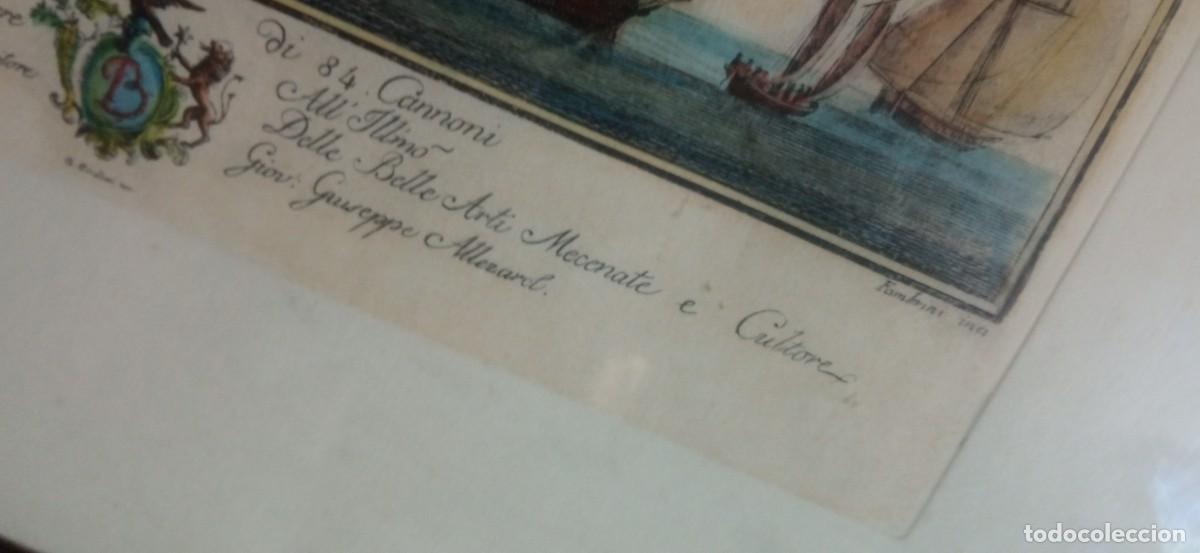 di 84. Cannoni
All' Illmo
Delle Belle Arti Mecenate e Cultore
Giov: Giuseppe Allezard.
B
Fambrini inci
todocoleccion